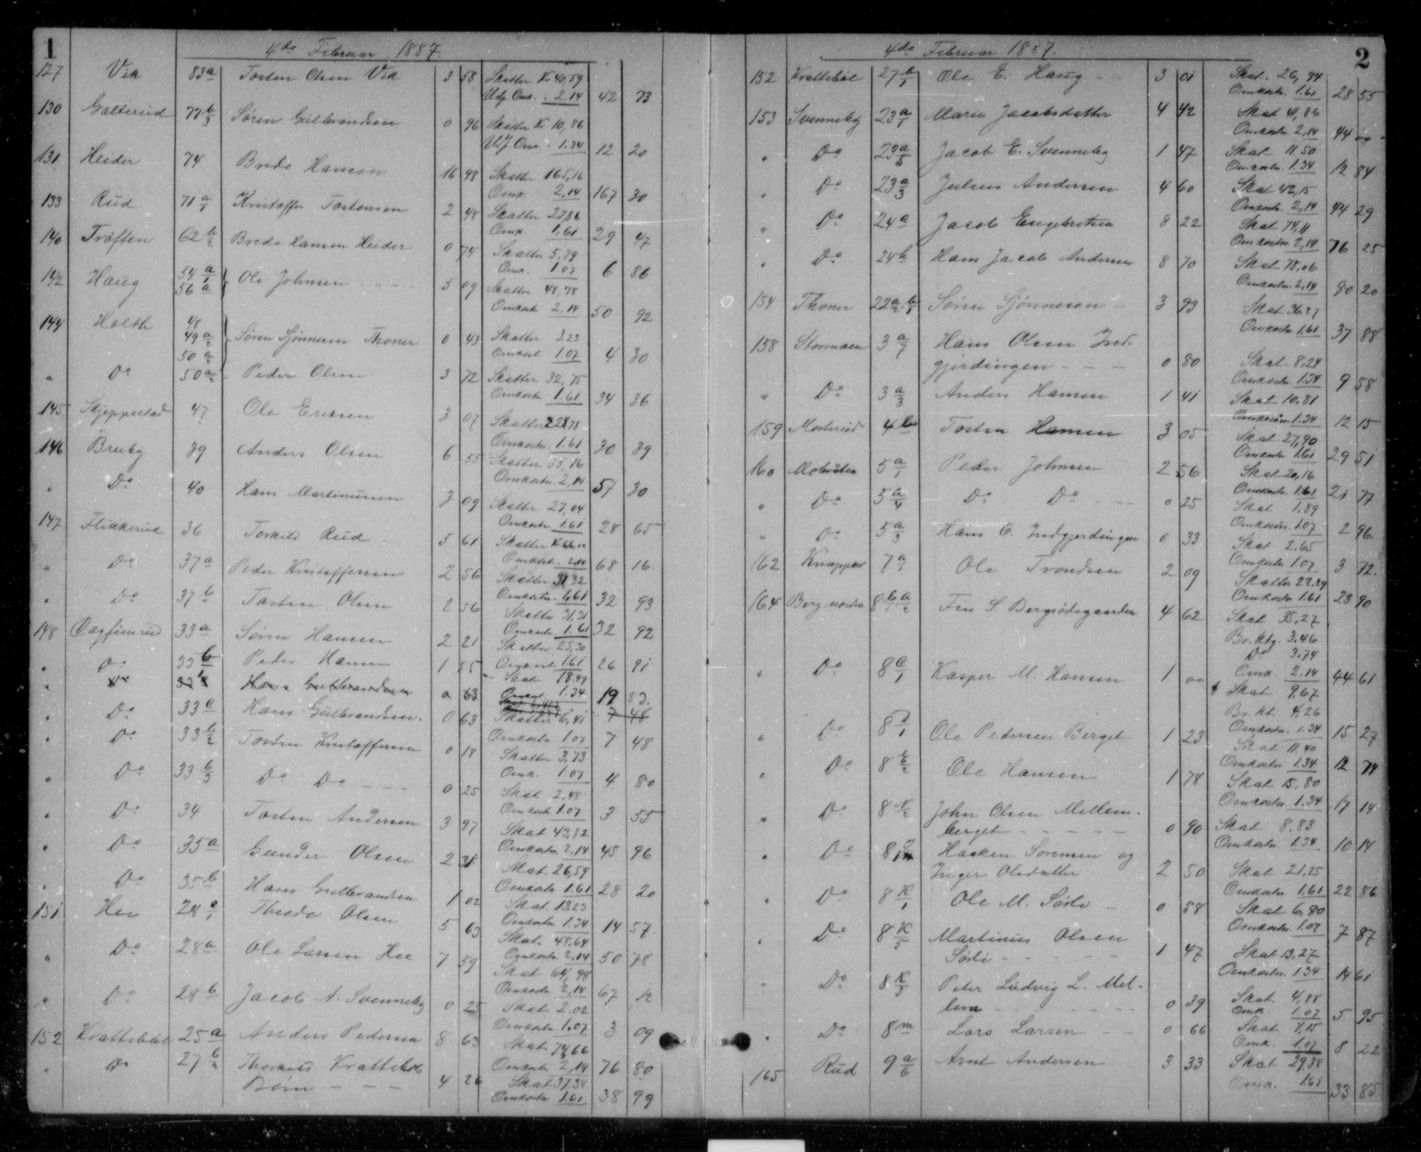 1
4de Februar 1887.
127 Vik 83a Torsten Olsen Vik 3 58 Skatter Kr 40,59
Udp Omk. 2,14 42 73
130 Galterud 77 b/3 Søren Gulbrandsen 0 96 Skatter Kr 10,86
Omk. 1.34 12 20
131 Heider 74 Brede Hansen 16 98 Skatter 165,16
Omk. 2,14 167 30
133 Rud 71 a/1 Kristoffer Torstensen 2 48 Skatter 27,86
Omk. 1.61 29 47
140 Trøften 62 b/2 Brede Hansen Heider 0 74 Skatter 5,79
Omk. 1.07 6 86
142 Haug 54 a/1 56 a Ole Johnsen 5 09 Skatter 48,78
Omkostn 2,14 50 92
144 Holth 48 49 a/2 50 a/2 Søren Sjønnesen Thoner 0 43 Skatter 3.23
Omkost 1.07 4 30
" Do 50 a/2 Peder Olsen 3 72 Skatter 32,75
Omkostn 1.61 34 36
145 Skjeppestad 47 Ole Eriksen 3 07 Skatter 28 78
Omkostn 1.61 30 39
146 Breiby 39 Anders Olsen 6 55 Skatter 55,16
Omkostn 2,14 57 30
" Do 40 Hans Martinusen 3 09 Skatter 27,04
Omkostn 1.61 28 65
147 Flikkerud 36 Torkild Rud 5 61 Skatter 66,02
Omkost. 2.14 68 16
" Do 37a Peder Kristoffersen 2 56 Skatter 31,32
Omkostn. 1.61 32 93
" Do 37b Torsten Olsen 2 56 Skatter 31,31
Omkostn 1.61 32 92
148 Dagfinrud 33a Søren Hansen 2 21 Skatter 25,30
Omkost 1.61 26 91
" Do 33b Peder Hansen 1 55 Skat 18.49
Omkost 1.34 19 83
" Do Hans Gulbrandsen 0 63
" Do 33a Hans Gulbrandsen. 0 63 Skatter 6,41
Omkostn 1.07 7 48
" Do 33 b/2 Torsten Kristoffersen 0 18 Skatter 3,73
Omk. 1.07 4 80
" Do 33 b/3 Do Do 0 25 Skat 2,48
Omkostn 1.07 3 55
" Do 34 Torsten Andersen 3 97 Skat 43,82
Omkostn 2,14 45 96
" Do 35a Gunder Olsen 2 31 Skat 26,59
Omkostn 1.61 28 20
" Do 35b Hans Gulbrandsen 1 02 Skat. 13.23
Omkostn 1.34 14 57.
151 Hee 24 Thrude Olsen 5 63 Skat. 48,64
Omkostn 2,14 50 78
" Do 28a Ole Larsen Hee 7 59 Skat 64,98
Omkostn 2,14 67 12
" Do 28b Jacob A. Svenneby 0 25 Skat 2.02
Omkostn 1.07 3 09
152 Krattebøl 25a Anders Pedersen 8 63 Skat 74,66
Omkostn 2,14 76 80
" Do 27 b/2 Thorkild Krattebøls
Børn 4 26 Skat 37,38
Omkostn 1.61 38 99
2
4de Februar 1887.
152 Krattebøl 27 b/1 Ole E. Haug 3 01 Skat. 26,94
Omkostn. 1.61 28 55
153 Svenneby 23 a/1 Marie Jacobsdatter 4 42 Skat 41,86
Omkostn 2,14 44 00
" Do 23 a/5 Jacob E. Svenneby 1 47 Skat 11.50
Omkostn 1.34 12 84
" Do 23 a/3 Julius Andersen 4 60 Skat 42,15
Omkostn. 2,14 44 29
" Do 24a Jacob Engebretsen 8 22 Skat 74,11
Omkostn. 2,14 76 25
" Do 24b Hans Jacob Andersen 8 70 Skat 78,06
Omkostn. 2,14 80 20
154 Thoner Søren Sjønnesen 3 93 Skat 36.27
Omkostn 1.61 37 88
158 Stormoen 3 a/7 Hans Olsen Ind-
gjerdingen 0 80 Skat 8,24
Omkostn 1.34 9 58
" Do 3 a/3 Anders Hansen 1 41 Skat 10.81
Omkostn 1.34 12 15
159 Morterud 4b Torsten Hansen 3 05 Skat 27,90
Omkostn 1.61 29 51
160 5 a/1 Peder Johnsen 2 56 Skat 20,16
Omkostn 1.61 21 77
" Do 5 a/4 Do Do 0 25 Skat 1,89
Omkostn 1.07 2 96.
" Do 5 a/3 Hans O. Indgjerdingen 0 33 Skat 2,65
Omkostn 1.07 3 72.
162 Knapper 7 a/1 Ole Trondsen 2 09 Skatter 22.29
Omkostn 1.61 23 90
164 Berg nordre Fru S. Bergsødegaarden 4 62 Skat 35,27
Br. ktg. 3,46
Do 3,74
Omk. 2,14 44 61
" Do 8 a/1 Kasper M. Hansen 1 00 Skat 9,67
Br. kt. 4,26
Omkostn. 1.34 15 27
" Do Ole Pedersen Berget 1 23 Skat 11.40
Omkostn 1.34 12 74
" Do 8 b/2 Ole Hansen 1 74 Skat 15,80
Omkostn. 1.34 17 14
" Do John Olsen Mellem-
berget 0 90 Skat 8.83
Omkostn 1.34 10 14
" Do Haaken Sørensen og
Inger Olsdatter 2 50 Skat 21.25
Omkostn 1.61 22 86
" Do 8 k/1 Ole M. Sørli 0 58 Skat 6,80
Omkostn 1.07 7 87
" Do Martinius Olsen
Sørli 1 47 Skat 13.27
Omkostn. 1.34 14 61
" Do 8 k/3 Peter Ludvig L. Mel-
lem 0 39 Skat. 4,88
Omk. 1.07 5 95
" Do 8m Lars Larsen 0 66 Skat 7,15
Omk. 1.07 8 22
165 Rud 9 a/6 Arnt Andersen 3 33 Skat 29,38
Omk. 1.61 33 85